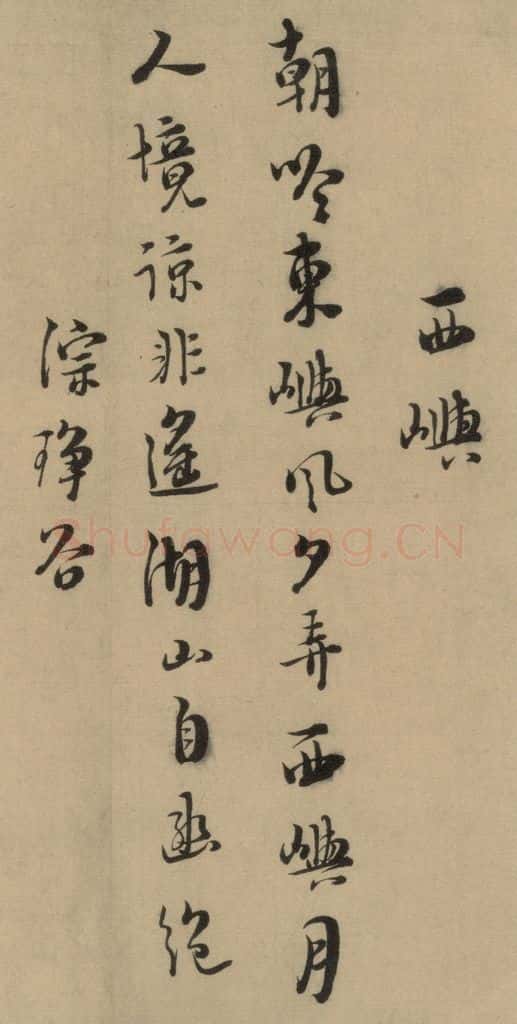 西嶼
朝吟東嶼風夕弄西嶼月
人境諒非遙湖山自幽絕
淙琤谷
Shufawang.CN